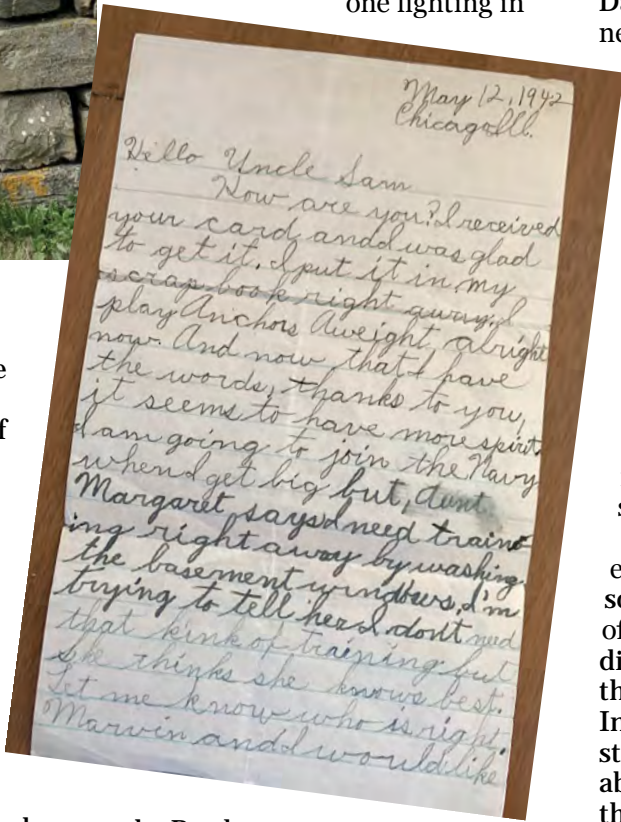 one fighting in
May 12, 1942
Chicago Ill.
Hello Uncle Sam
How are you? I received
your card and I was glad
to get it. I put it in my
scrap book right away. I
play Anchors Aweight alright
now. And now that I have
the words, thanks to you,
it seems to have more spirit.
I am going to join the Navy
when I get big but, Aunt
Margaret says I need train-
ing right away by washing
the basement windows, I'm
trying to tell her I don't need
that kink of training but
she thinks she knows best.
Let me know who is right.
Marvin and I would like